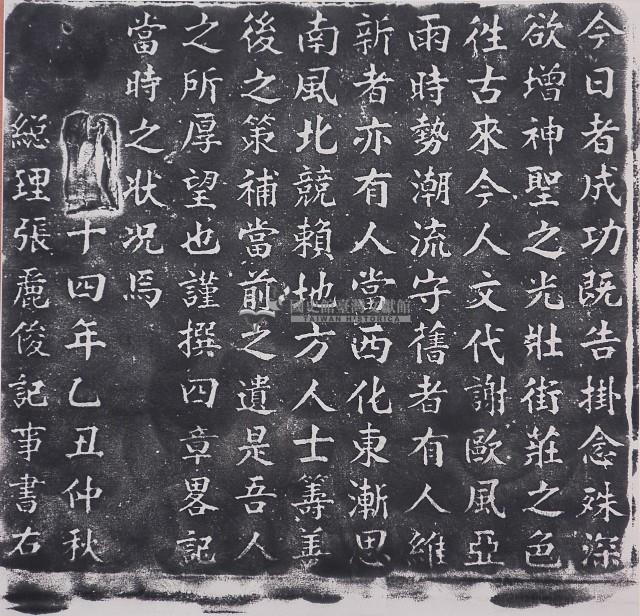 今日者成功既告掛念殊深
欲增神聖之光壯街莊之色
徃古來今人文代謝歐風亞
雨時勢潮流守舊者有人維
新者亦有人當西化東漸思
南風北競賴地方人士籌善
後之策補當前之遺是吾人
之所厚望也謹撰四章畧記
當時之狀况焉
十四年乙丑仲秋
總理張麗俊記事書右
國史館臺灣文獻館
TAIWAN HISTORICA